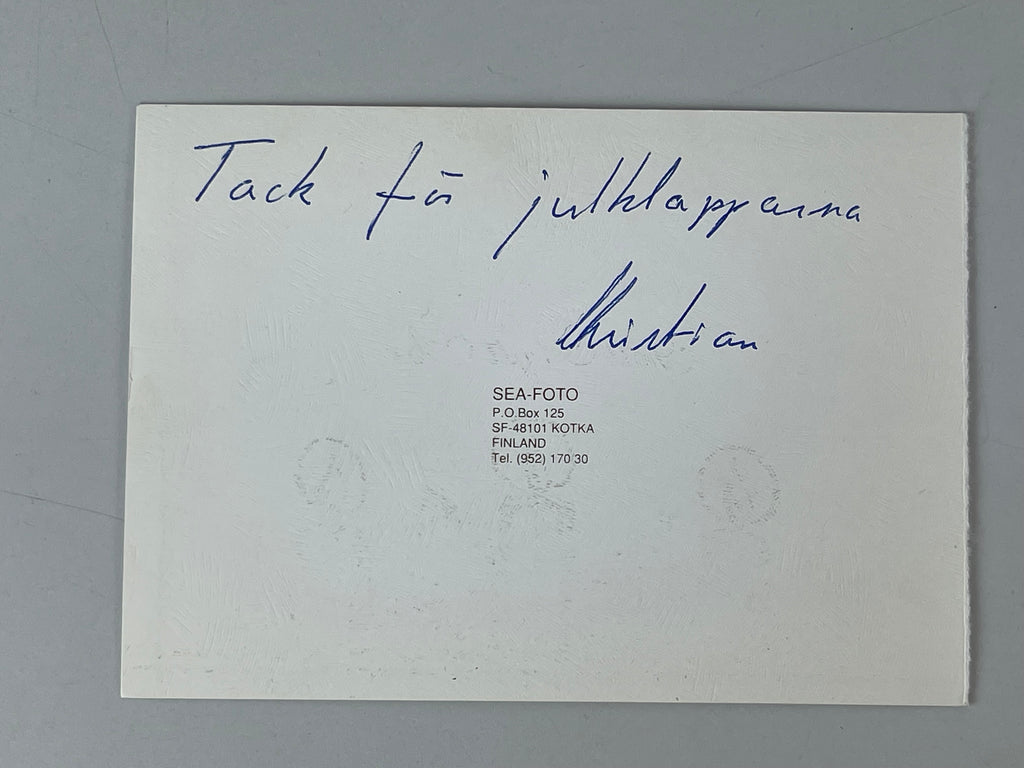 Tack för julklapparna
Christian
SEA-FOTO
P.O.Box 125
SF-48101 KOTKA
FINLAND
Tel. (952) 170 30